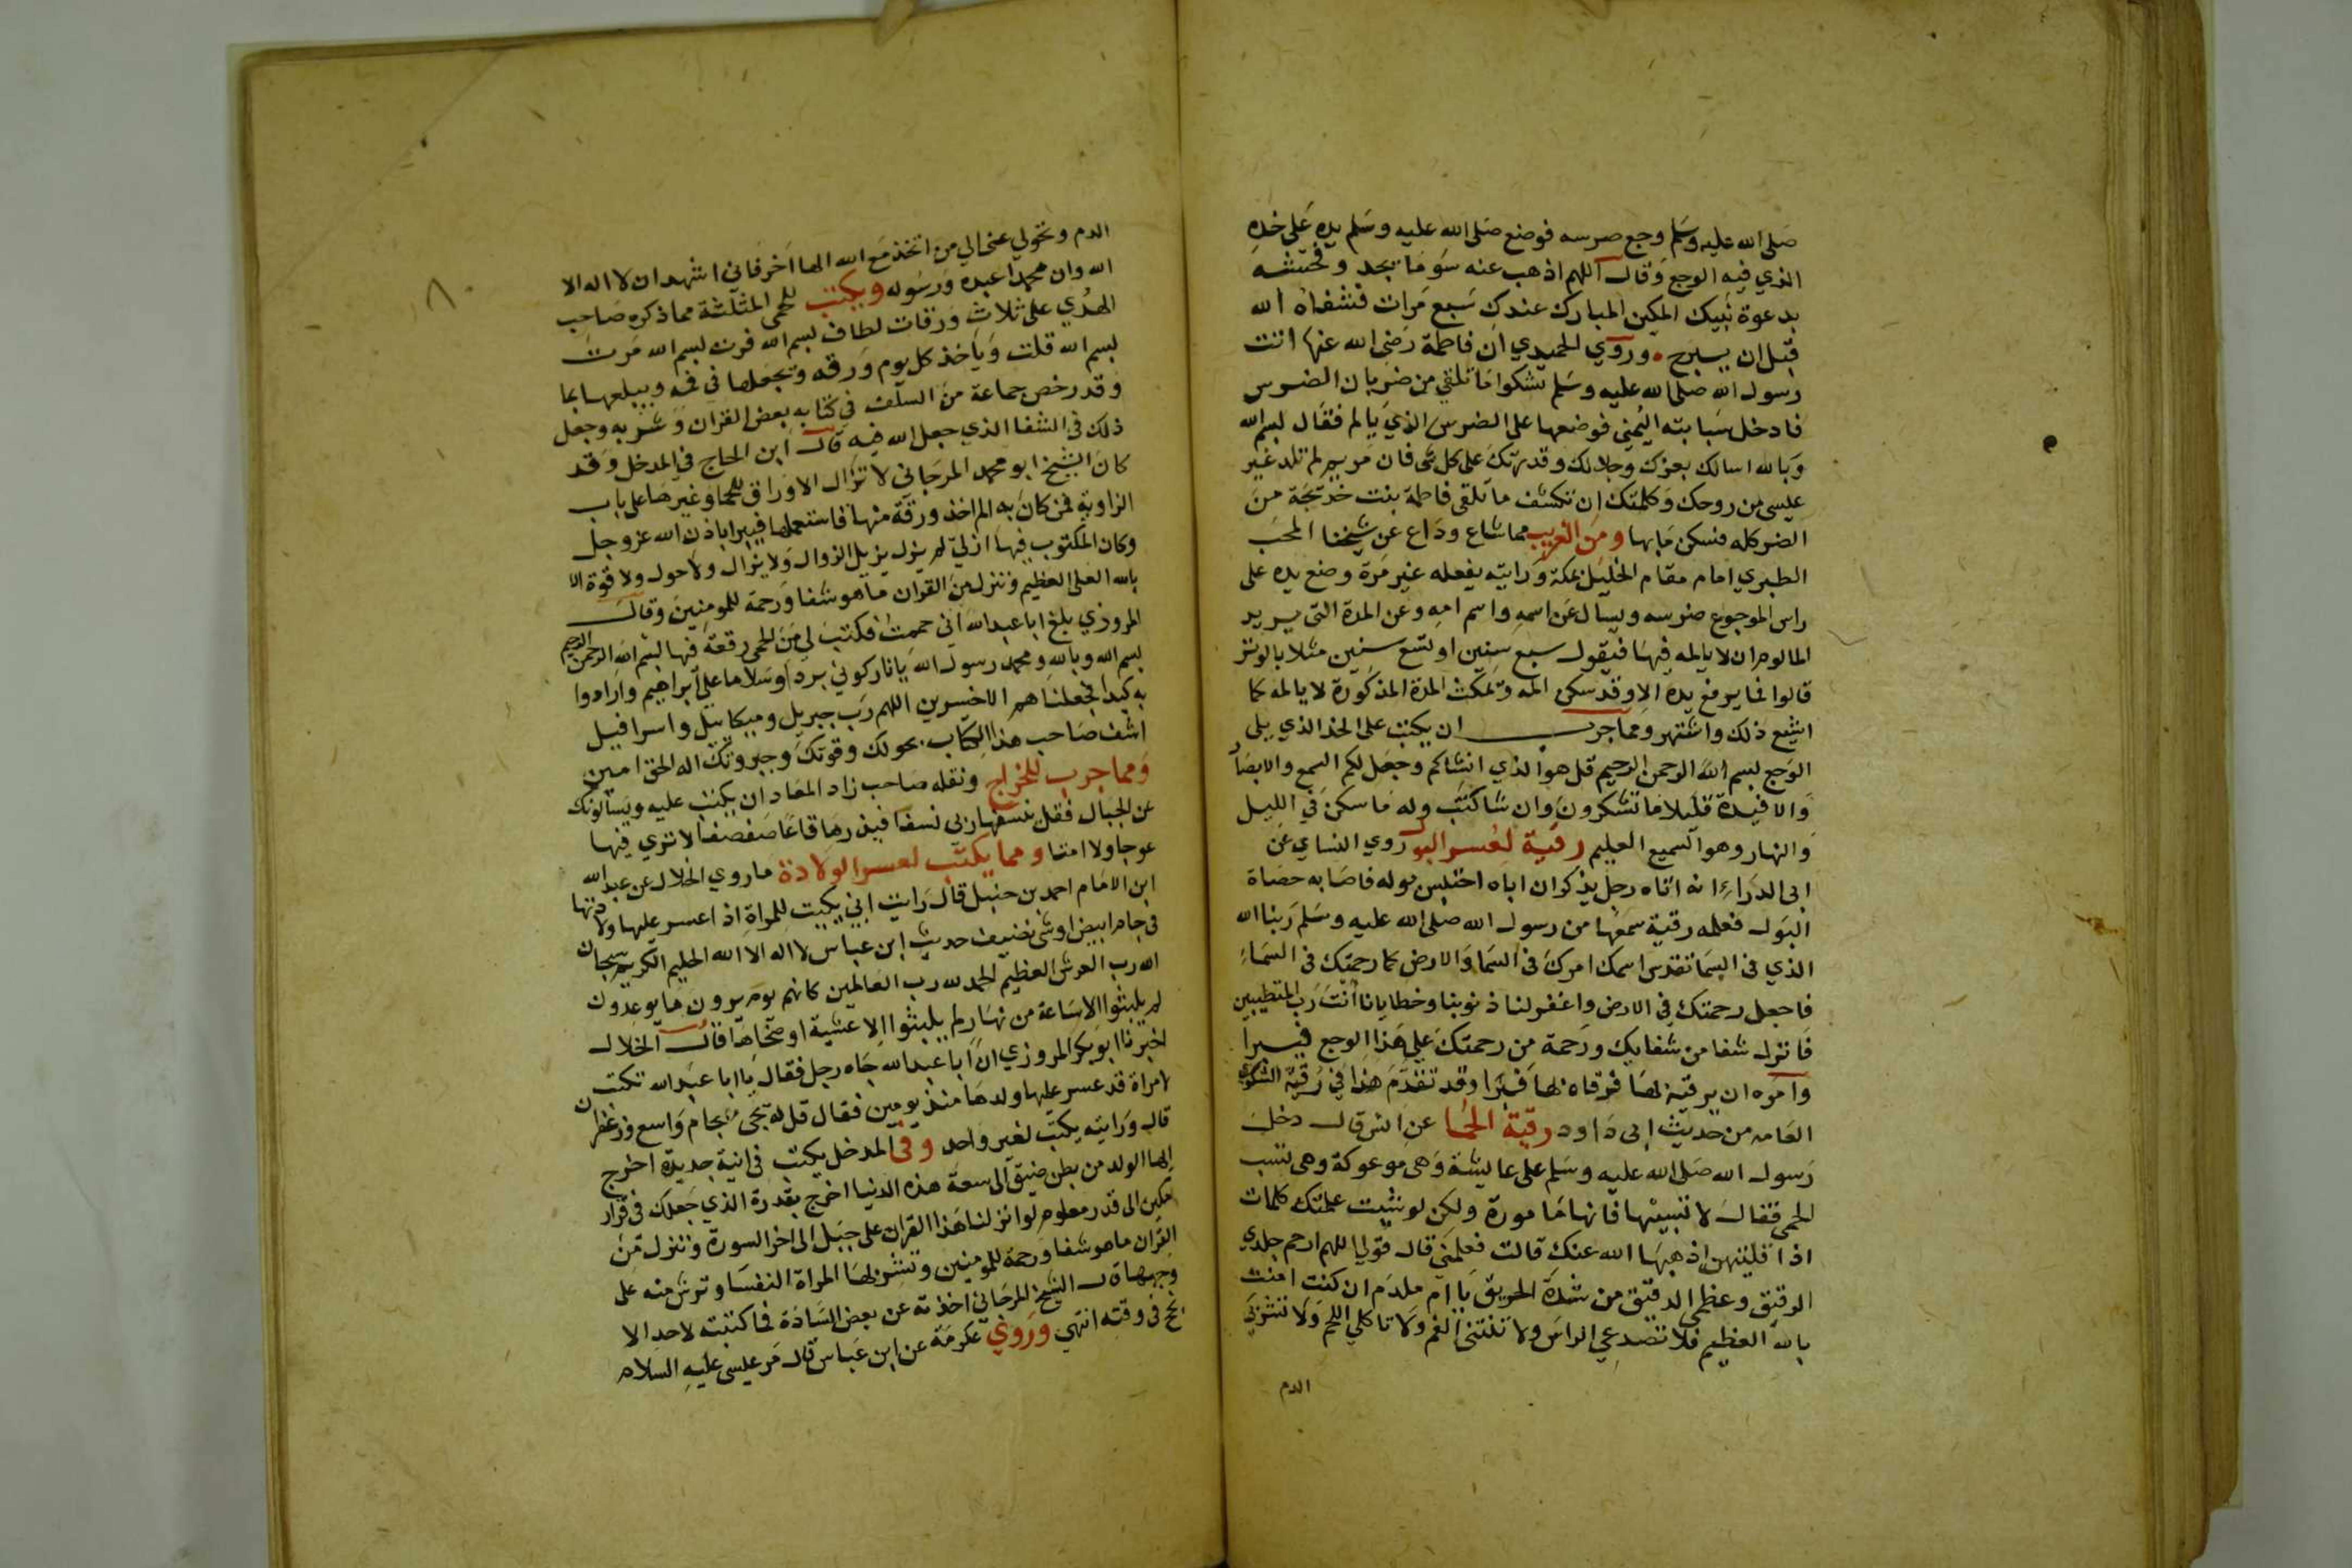 صلى الله عليه وسلم وجع ضرسه فوضع صلى الله عليه وسلم يده على خده
الذي فيه الوجع وقال اللهم اذهب عنه سوء ما يجد وفحشه
بدعوة نبيك المكين المبارك عندك سبع مرات فشفاه الله
قبل ان يبرح وروي الحميدي ان فاطمة رضى الله عنها اتت
رسول الله صلى الله عليه وسلم تشكوا ما تلقي من ضربان الضرس
فادخل سبابته اليمني فوضعها على الضرس الذي يالم فقال بسم الله
وبالله اسالك بعزك وجلالك وقدرتك على كل شى فان مريم لم تلد غير
عيسى من روحك وكلمتك ان تكشف ما تلقى فاطمة بنت خديجة من
الضر كله فسكن ما بها ومن الغريب مما شاع وذاع عن شيخنا المحب
الطبري امام مقام الخليل بمكة ورايته يفعله غير مرة وضع يده على
راس الموجوع ضرسه ويسال عن اسمه واسم امه وعن المدة التى يريد
المالوم ان لا يالمه فيها فيقول سبع سنين او تسع سنين مثلا بالوتر
قالوا فما يرفع يده الا وقد سكن المه وتمكث المدة المذكورة لا يالمه كما
اشيع ذلك واشتهر ومما جرب ان يكتب على الخد الذي يلى
الوجع بسم الله الرحمن الرحيم قل هو الذي انشاكم وجعل لكم السمع والابصار
والافيدة قليلا ما تشكرون وان شا كتب وله ما سكن في الليل
والنهار وهو السميع العليم رقية لعسر البول روي النساي عن
ابى الدرداء انه اتاه رجل يذكر ان اباه احتبس بوله فاصابه حصاة
البول فعلمه رقية سمعها من رسول الله صلى الله عليه وسلم ربنا الله
الذي في السما تقدس اسمك امرك في السما والارض كما رحمتك في السماء
فاجعل رحمتك في الارض واغفر لنا ذنوبنا وخطايانا انت رب المتطيبين
فانزل شفا من شفايك ورحمة من رحمتك علي هذا الوجع فيبرا
وامره ان يرقيه بها فرقاه بها فبرا وقد تقدم هذا في رقية الشكوي
العامه من حديث ابى داود رقية الحما عن انس قال دخل
رسول الله صلى الله عليه وسلم على عايشة وهى موعوكة وهى تسب
الحمى فقال لا تسبيها فانها مامورة ولكن لو شيت علمتك كلمات
اذا قلتيهن اذهبها الله عنك قالت فعلمني قال قولي اللهم ارحم جلدي
الرقيق وعظمي الدقيق من شدة الحريق يا ام ملدم ان كنت امنت
بالله العظيم فلا تصدعي الراس ولا تنتني الفم ولا تاكلي اللحم ولا تشربي
الدم
٨٠
الدم وتحولي عنى الي من اتخذ مع الله الها اخر فاني اشهد ان لا اله الا
الله وان محمدا عبده ورسوله ويكتب للحمى المثلثة مما ذكره صاحب
الهدي على ثلاث ورقات لطاف بسم الله فرت بسم الله مرت
بسم الله قلت وياخذ كل يوم ورقه وتجعلها في فمه ويبلعها بما
وقد رخص جماعة من السلف في كتابه بعض القران وشربه وجعل
ذلك في الشفا الذي جعل الله فيه قال ابن الحاج في المدخل وقد
كان الشيخ ابو محمد المرجاني لا تزال الاوراق للحما وغيرها على باب
الزاوية فمن كان به الم اخذ ورقة منها فاستعملها فيبرا باذن الله عز وجل
وكان المكتوب فيها ازلي لم يزل يزيل الزوال ولا يزال ولا حول ولا قوة الا
بالله العلي العظيم وننزل من القران ما هو شفا ورحمة للمومنين وقال
المروزي بلغ ابا عبد الله اني حممت فكتب لي من الحمى رقعة فيها بسم الله الرحمن الرحيم
بسم الله وبالله ومحمد رسول الله يا نار كوني بردا وسلاما على ابراهيم وارادوا
به كيدا فجعلناهم الاخسرين اللهم رب جبريل وميكاييل واسرافيل
اشف صاحب هذا الكتاب بحولك وقوتك وجبروتك اله الحق امين
ومما جرب للخراج ونقله صاحب زاد المعاد ان يكتب عليه ويسالونك
عن الجبال فقل ينسفها ربي نسفا فيذرها قاعا صفصفا لا تري فيها
عوجا ولا امتا ومما يكتب لعسر الولادة ما روي الخلال عن عبد الله
ابن الامام احمد بن حنبل قال رايت ابي يكتب للمراة اذا عسر عليها ولادتها
في جام ابيض او شى نضيف حديث ابن عباس لا اله الا الله الحليم الكريم سبحان
الله رب العرش العظيم الحمد لله رب العالمين كانهم يوم يرون ما يوعدون
لم يلبثوا الا ساعة من نهار لم يلبثوا الا عشية او ضحاها قال الخلال
اخبرنا ابو بكر المروزي ان ابا عبد الله جاه رجل فقال يا ابا عبد الله تكتب
لامراة قد عسر عليها ولدها منذ يومين فقال قل له يجى بجام واسع وزعفران
قال ورايته يكتب لغير واحد وفي المدخل يكتب في انية جديدة اخرج
ايها الولد من بطن ضيق الى سعة هذه الدنيا اخرج بقدرة الذي جعلك في قرار
مكين الى قدر معلوم لو انزلنا هذا القران على جبل الى اخر السورة وننزل من
القران ما هو شفا ورحمة للمومنين وتشربها المراة النفسا وترش منه على
وجهها قال الشيخ المرجاني اخذته عن بعض السادة فما كتبته لاحد الا
نجح في وقته انتهي وروي عكرمة عن ابن عباس قال مر عيسى عليه السلام